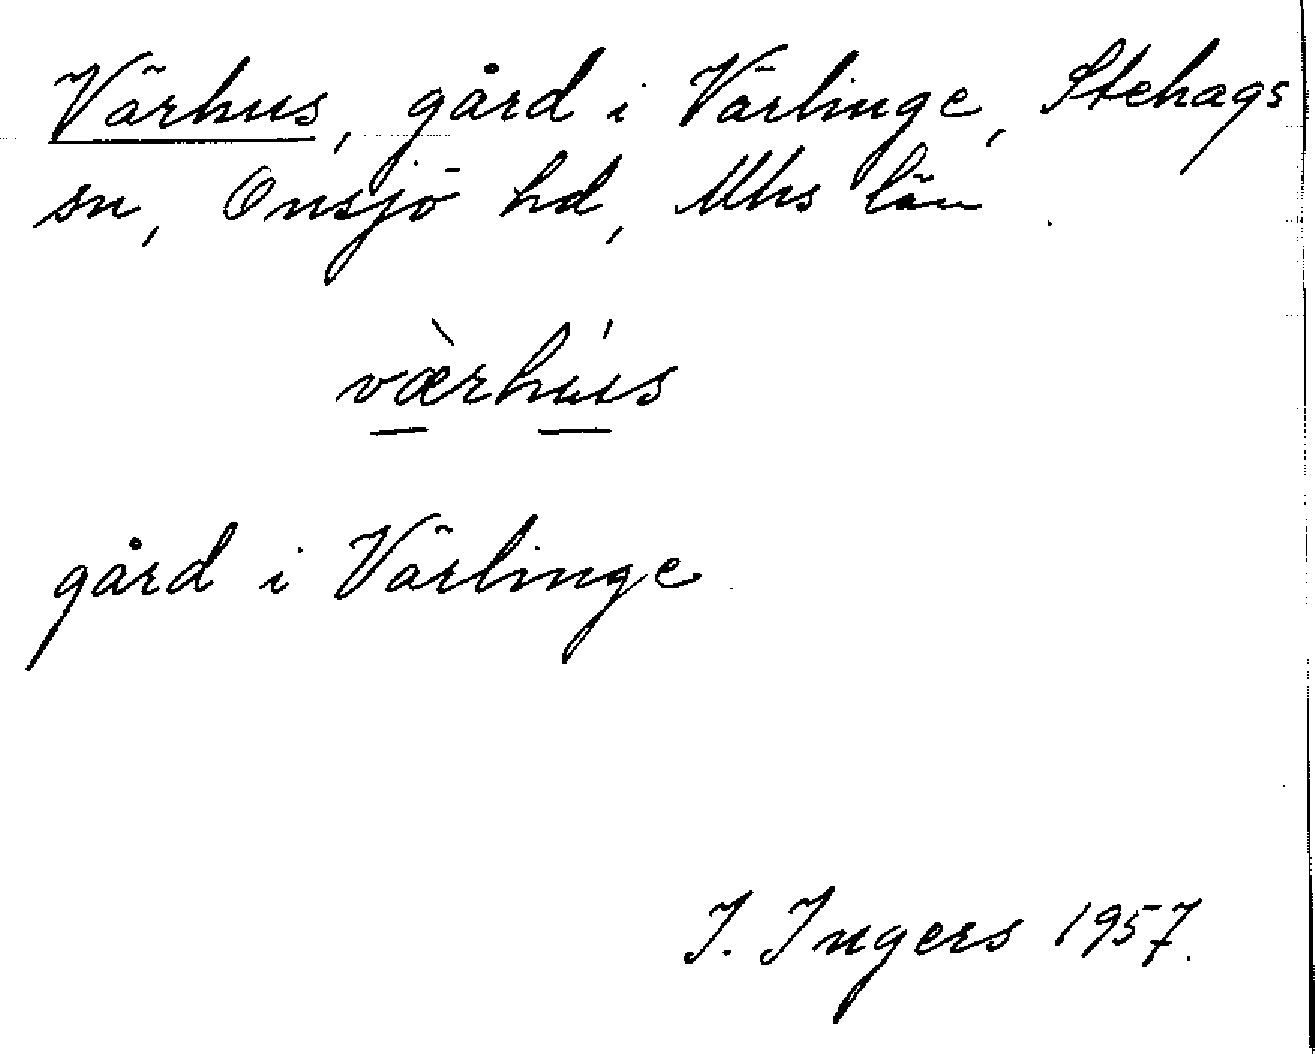 Värhus, gård i Värlinge, Stehags
sn, Onsjö hd, Mhs län
værhús
gård i Värlinge
I. Ingers 1957.